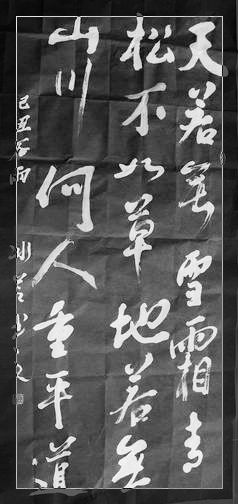 天若無雪霜青
松不如草地若無
山川何人重平道
己丑谷雨